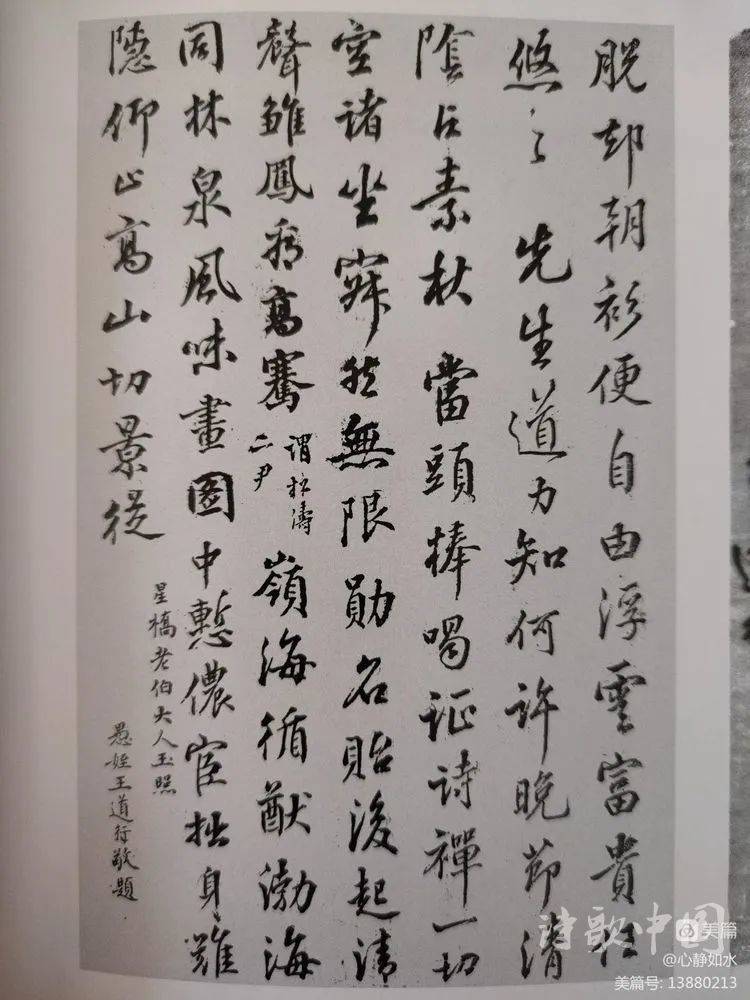 脫却朝衫便自由浮雲富貴任
悠々先生道力知何許晚節清
隂占素秋當頭棒喝証詩禪一切
空諸坐寂然無限勛名貽後起清
聲雛鳳看高騫謂松濤二尹嶺海循猷渤海
同林泉風味畫圖中慙儂宦拙身難
隱仰止高山切景從
星橋老伯大人玉照
愚姪王道行敬題
诗歌中国
美篇
@心静如水
美篇号: 13880213